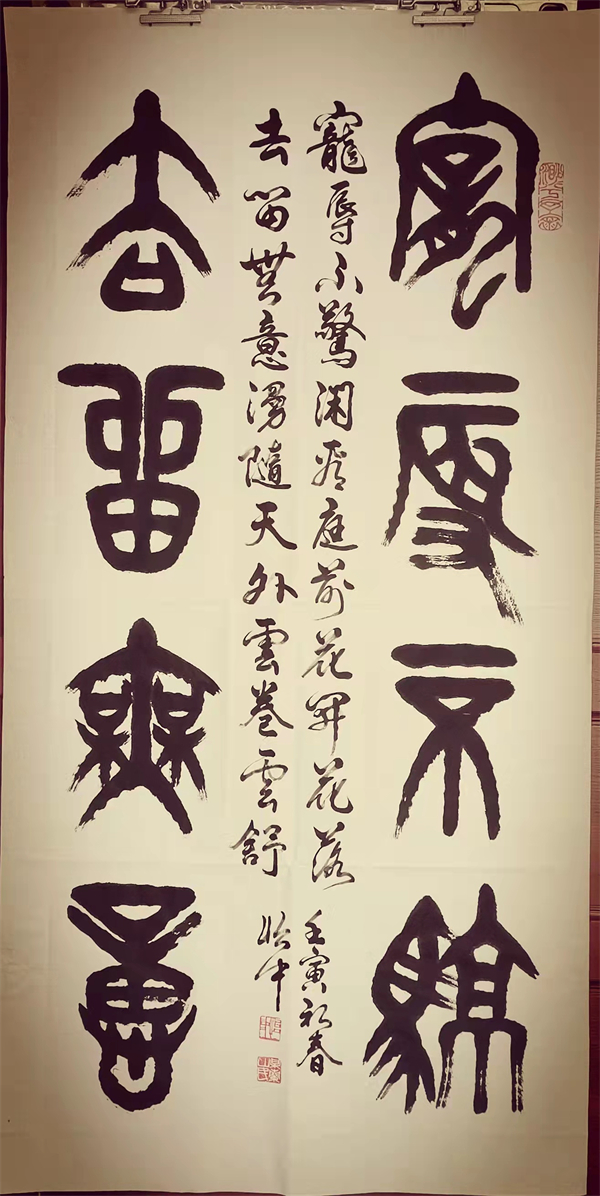 寵辱不驚
寵辱不驚閑看庭前花開花落
壬寅初春
去留無意漫隨天外雲卷雲舒
去留無意